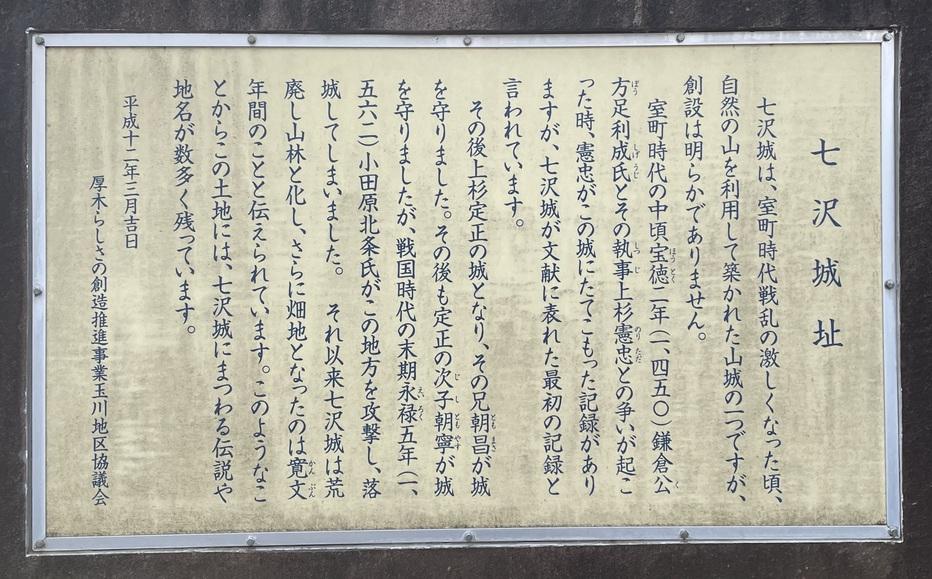 七沢城址
七沢城は、室町時代戦乱の激しくなった頃、
自然の山を利用して築かれた山城の一つですが、
創設は明らかでありません。
室町時代の中頃宝徳二年（一、四五〇）鎌倉公
方足利成氏とその執事上杉憲忠との争いが起こ
った時、憲忠がこの城にたてこもった記録があり
ますが、七沢城が文献に表れた最初の記録と
言われています。
その後上杉定正の城となり、その兄朝昌が城
を守りました。その後も定正の次子朝寧が城
を守りましたが、戦国時代の末期永禄五年（一、
五六二）小田原北条氏がこの地方を攻撃し、落
城してしまいました。　それ以来七沢城は荒
廃し山林と化し、さらに畑地となったのは寛文
年間のことと伝えられています。このようなこ
とからこの土地には、七沢城にまつわる伝説や
地名が数多く残っています。
平成十二年三月吉日
厚木らしさの創造推進事業玉川地区協議会